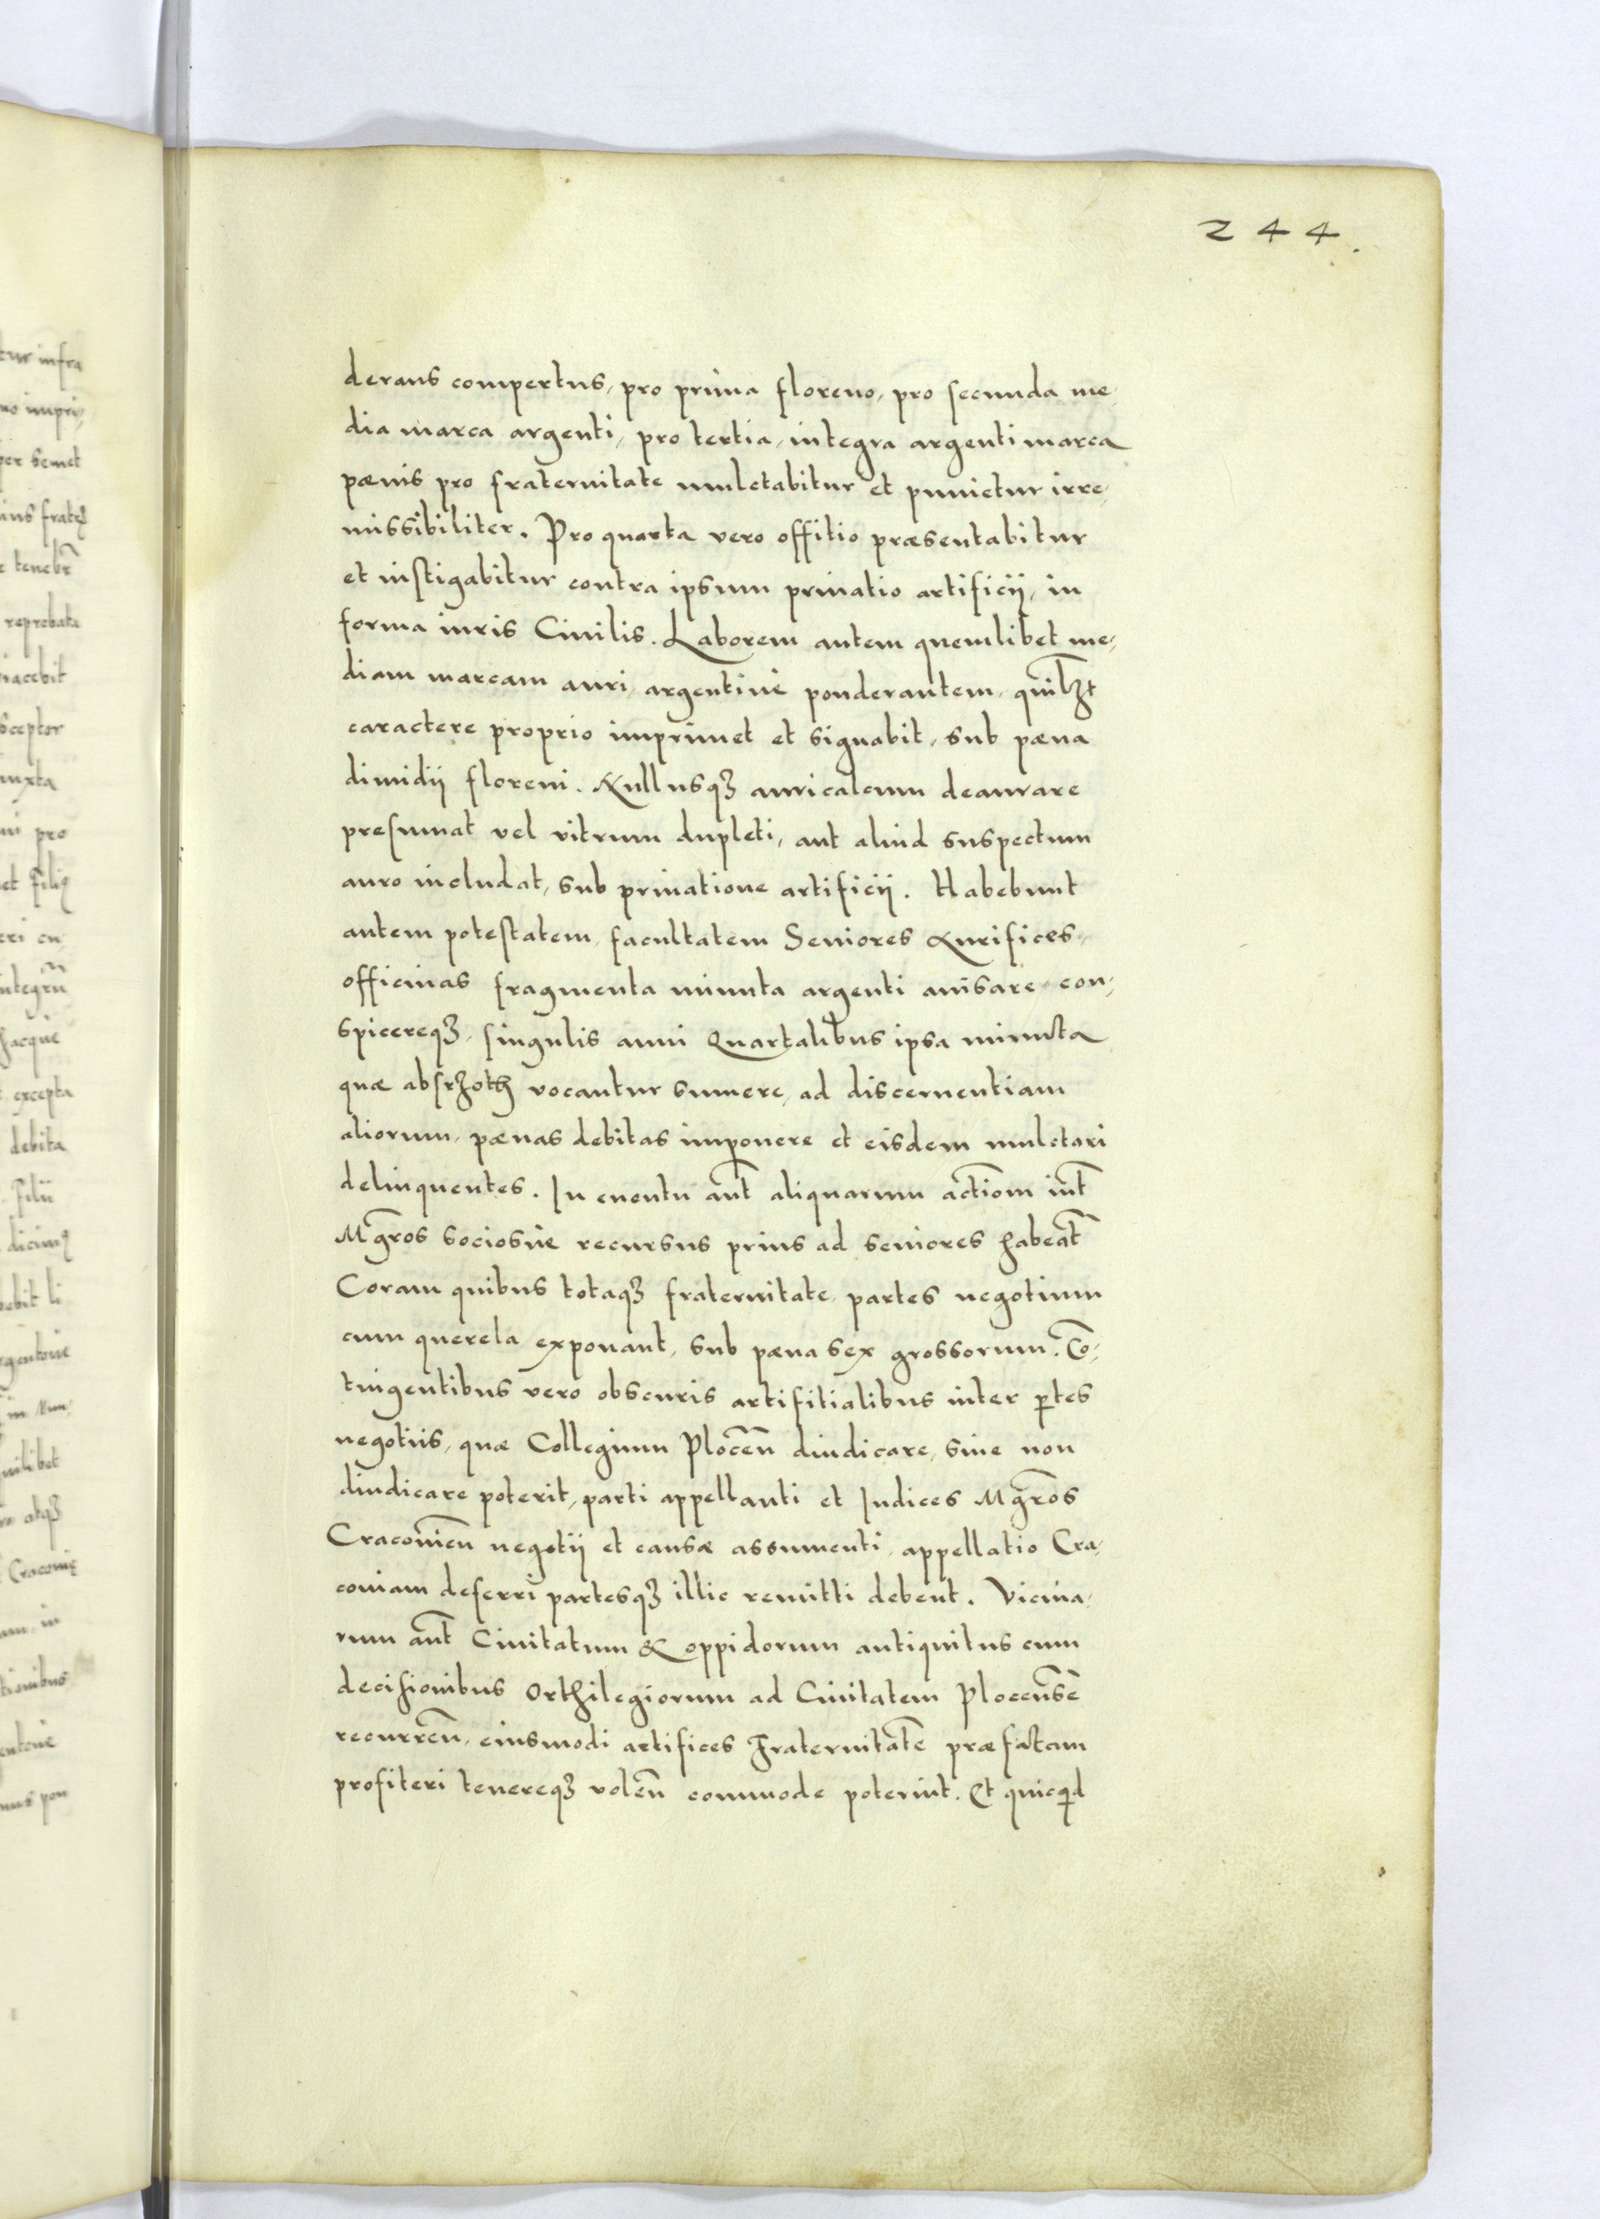 244.
derans compertus, pro prima floreno, pro secunda me,
dia marca argenti, pro tertia, integra argenti marca
pænis pro fraternitate mulctabitur et punietur irre,
missibiliter. Pro quarta vero offitio præsentabitur
et instigabitur contra ipsum priuatio artificij, in
forma iuris Ciuilis. Laborem autem quemlibet me,
diam marcam auri, argentiue ponderantem, quilꝫt
caractere proprio imprimet et signabit, sub pæna
dimidij floreni. Nullusqꝫ auricalcum deaurare
presumat vel vitrum dupleti, aut aliud suspectum
auro includat, sub priuatione artificij. Habebunt
autem potestatem, facultatem Seniores Aurifices,
officinas fragmenta minuta argenti auisare, con,
spicereqꝫ, singulis anni Quartalibus ipsa minuta
quæ absrzoth vocantur sumere, ad discernentiam
aliorum, pænas debitas imponere et eisdem mulctari
delinquentes. In euentu aut̃ aliquarum actiom̃ int̃
Mgr̃os sociosue recursus prius ad seniores habeat̃
Coram quibus totaqꝫ fraternitate, partes negotium
cum querela exponant, sub pæna sex grossorum. Cõ,
tingentibus vero obscuris artifitialibus inter ꝑtes
negotiis, quæ Collegium Plocen̄ diudicare, siue non
diudicare poterit, parti appellanti et Iudices Mgr̃os
Cracouien̄ negotij et causæ assumenti, appellatio Cra,
couiam deferri partesqꝫ illic remitti debent. Vicina,
rum aut̃ Ciuitatum & oppidorum antiquitus cum
decisionibus Orthilegiorum ad Ciuitatem Plocensẽ
recurren̄, eiusmodi artifices Fraternitatẽ præfactam
profiteri tenereqꝫ volen̄ commode poterint. Et quicqid